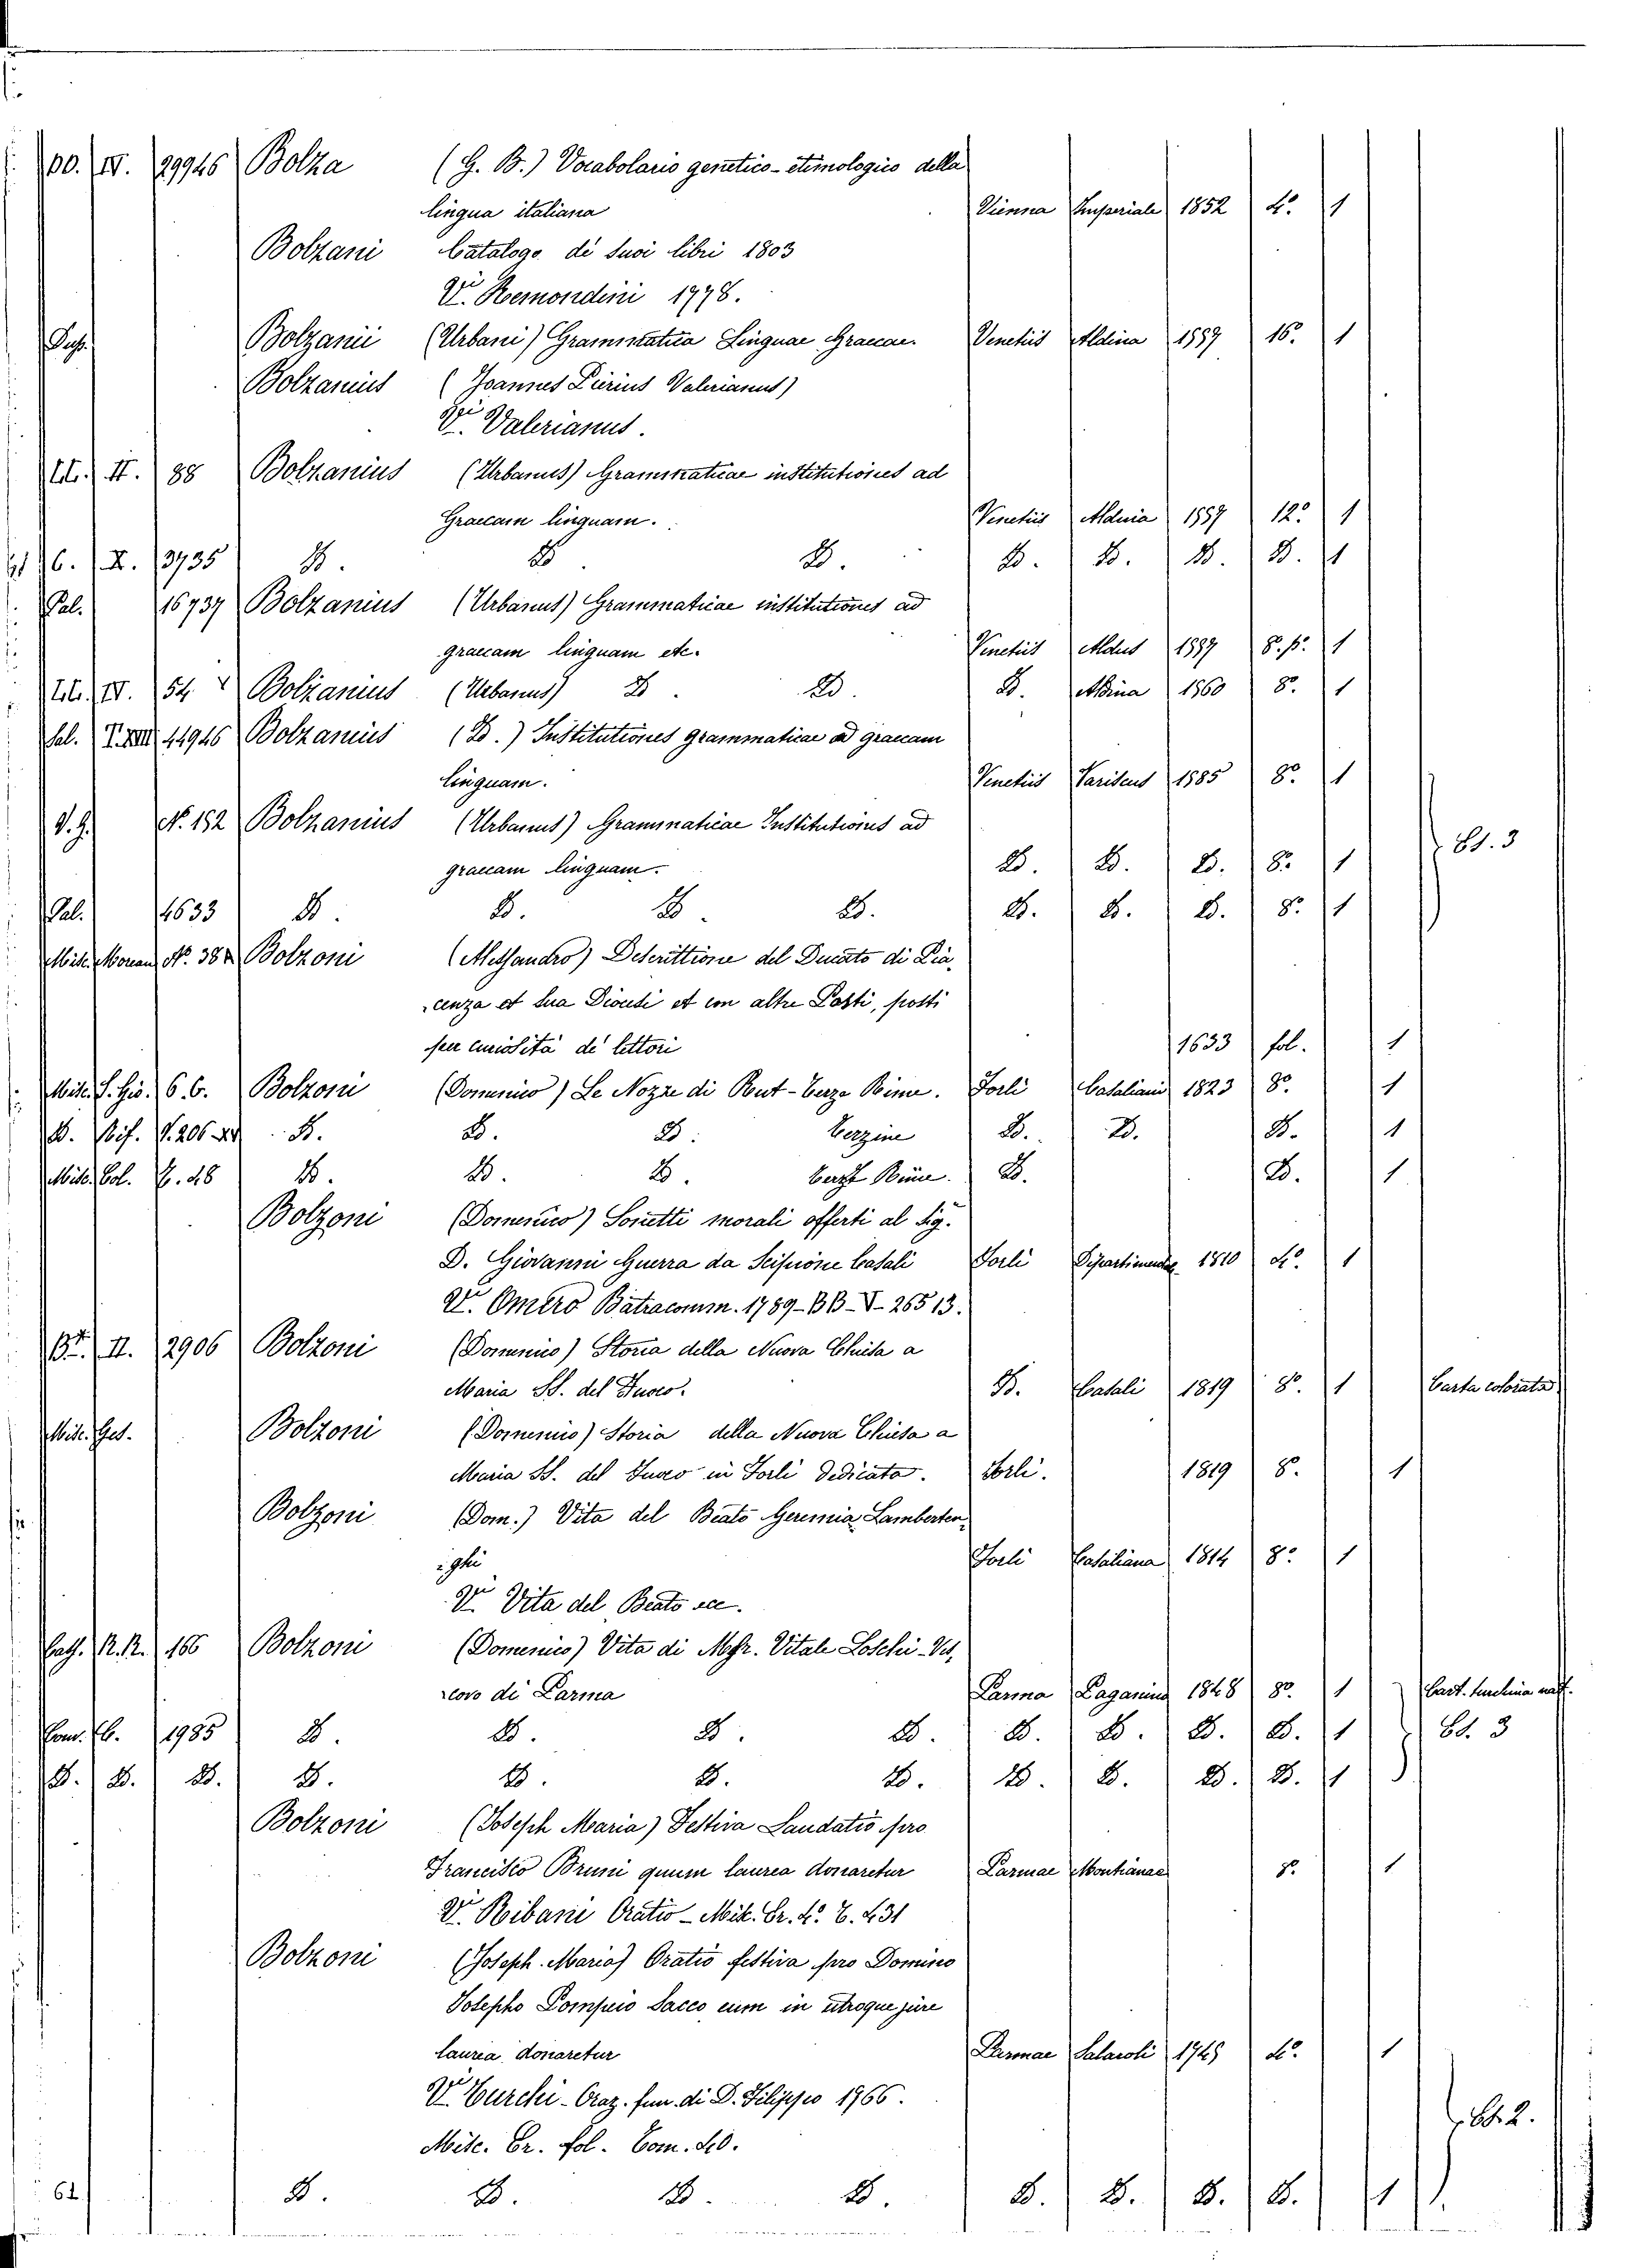 00. IV. 29946 Bolza (G. B.) Vocabolario genetico-etimologico della
lingua italiana Vienna Imperiale 1852 4.º 1
Bolzani Catalogo de suoi libri 1803
V. Remondini 1778.
Bolzanii (Urbani) Grammatica Linguae Graecae. Venetiis Aldina 1557 16.º 1
Bolzanius (Joannes Pierius Valerianus)
V. Valerianus.
II. 88 Bolzanius (Urbanus) Grammaticae institutiones ad
Graecam linguam. Venetiis Aldina 1557 12.º 1
6. X. 13735 D. D D. D. D. D. D. 1
Pal. 16737 Bolzanius (Urbanus) Grammaticae institutiones ad
graecam linguam etc. Venetiis Aldus 1557 8. p. 1
IV. 54 Bolzanius (Urbanus) D. D. D. Aldina 1560 8.º 1
Pal. T. XIII 44946 Bolzanius (D.) Institutiones grammaticae ad graecam
linguam. Venetiis Variscus 1585 8.º 1
V. G. N. 152 Bolzanius (Urbanus) Grammaticae Institutiones ad
graecam linguam. D. D. D. 8.º 1 Es. 3
Pal. 14633 D. D. D. D. D. D. D. 8.º 1
Misc. Moreau N. 382 Bolzoni (Alessandro) Descrittione del Ducato di Pia-
cenza et sua Diocesi et con altre Posti, posti
per curiosità de' lettori 1633 fol. 1
Misc. S. Gio. 6. 6. Bolzoni (Domenico) Le Nozze di But-Terze Rime. Forlì Casaliana 1823 8.º 1
D. D. D. Terzine D. D. D. 1
Misc. Col. D. D. D. Terze Rime. D. D. 1
Bolzoni (Domenico) Sonetti morali offerti al Sig.
D. Giovanni Guerra da Scipione Casali Forlì Dipartimentale 1810 4.º 1
V. Omero Batracomm. 1789-BB-V-26513.
II. 2906 Bolzoni (Domenico) Storia della Nuova Chiesa a
Maria SS. del Fuoco. D. Casali 1819 8.º 1 Carta colorata
Misc. Ges. Bolzoni (Domenico) Storia della Nuova Chiesa a
Maria SS. del Fuoco in Forlì dedicata. Forlì. 1819 8. 1
Bolzoni (Dom.) Vita del Beato Geremia Lamberten-
ghi Forlì Casaliana 1814 8.º 1
V. Vita del Beato ecc.
R. R. 166 Bolzoni (Domenico) Vita di Msgr. Vitale Loschi-Ves-
covo di Parma Parma Paganino 1848 8.º 1 Cart. turchina
1985 D. D. D. D. D. D. D. D. 1 Es. 3
D. D. D. D. D. D. D. D. D. D. D. 1
Bolzoni (Joseph Maria) Festiva Laudatio pro
Francisco Bruni quum laurea donaretur Parmae Montianae 8.º 1
V. Ribani Oratio-Misc. Er. 4.º T. 431
Bolzoni (Joseph. Maria) Oratio festiva pro Domino
Josepho Pompeio Sacco cum in utroque jure
laurea donaretur Parmae Salaroli 4.º 1
V. Turchi-Oraz. fun. di D. Filippo 1766.
Misc. Er. fol. Tom. 40. Es. 2.
62 D. D. D. D. D. D. D. D. 1